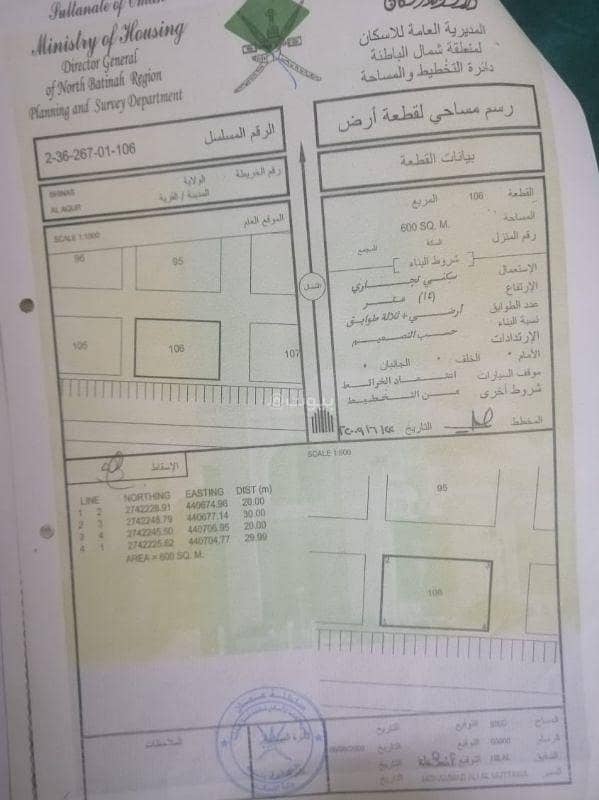 Sultanate of Oman
Ministry of Housing
Director General
of North Batinah Region
Planning and Survey Department
المديرية العامة للاسكان
لمنطقة شمال الباطنة
دائرة التخطيط والمساحة
الرقم المسلسل
2-36-267-01-106
رقم الخريطة
الولاية
SHINAS
المدينة / القرية
AL AQUR
رسم مساحي لقطعة أرض
بيانات القطعة
الموقع العام
SCALE 1:1000
96
95
105
106
107
الشمال
القطعة
106
المربع
المساحة
600 SQ. M.
رقم المنزل
السكة
المجمع
شروط البناء
الإستعمال
سكني تجاري
الإرتفاع
عدد الطوابق
أرضي + ثلاثة طوابق
نسبة البناء
حسب التصميم
الإرتدادات
الأمام
الخلف
الجانبان
موقف السيارات
شروط أخرى
من التخطيط
المخطط
التاريخ
SCALE 1:500
الإسقاط
LINE NORTHING EASTING DIST (m)
1 2 2742228.91 440674.96 20.00
2 3 2742248.79 440677.14 30.00
3 4 2742245.50 440706.95 20.00
4 1 2742225.62 440704.77 29.99
AREA = 600 SQ. M.
95
2
106
الملاحظات
المساح
التوقيع
التاريخ
الرسام
التوقيع
التاريخ
المدقق
التوقيع
التاريخ
المدير
التاريخ